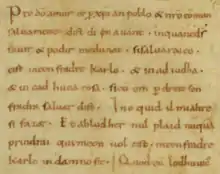 Pro dō amur & ꝓ xp̄ian poblo & nr̄o cōmun
saluament. dist di en auant. inquantd̄s
sauir & podir medunat. sisaluaraieo
cist meon fradre karlo. & in aiudha
& in cad huna cosa. sicū om ꝑ dreit son
fradra saluar dist. Ino quid il mialtre
si faz&. Et abludher nul plaid nūquā
prindrai qui meon uol cist. meon fradre
karle in damno sit. Quod cū lodhuuic